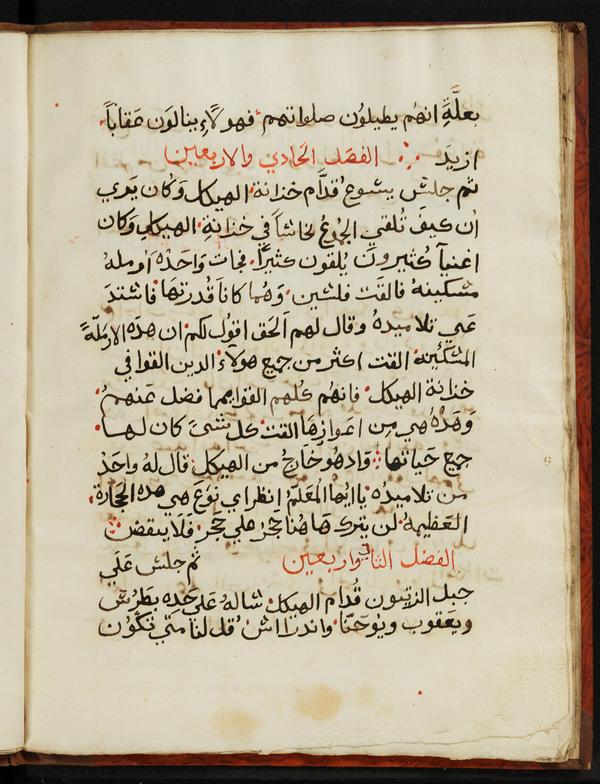 بعلَّةِ انهُم يطيلوُن صلواتهم فهولآءِ ينالوَن عَقاباً
ازيدَ الفصَل الحَادي والاربعين
ثم جلسَ يسُوع قدَّام خزانة الهيكل وَكان يَري
ان كيفَ تُلقي الجُموع نحاسًا في خزانةِ الهيكلِ وَكان
اغنيآ كثيروُن يُلقون كثيراً فجات وَاحدَه ارمله
مسكينه فالقَت فلسَين وَهُما كاناَ قدرتهَا فاستدَ
عَي تلاميذهُ وقال لهم الحَق اقوُل لكم ان هَذه الارملَةَ
المسَكينه القت اكثر من جميع هولآء الذين القوا في
خزانة الهيكل فانهُم كُلهم القوا مما فضل عَنهم
وَهَذه هي مِن اعوازهَا القت كل شيَ كان لهَا
جميع حَياتها وَاذ هُو خَارجُ من الهيكل قال له واحَدُ
من تلاميذُه يا ايهُا المعَلم انظر اي نوعَ هي هذه الحجَارة
العَظيمهُ لن يتركَ هَا هُنا حَجرُ علي حَجر فلَا ينقض
الفصَل الثاني واربعين ثم جلسَ عَلَي
جبل الزيتون قُدام الهيكل سَاله عَلي حَده بطَرسَ
ويعَقوب ويوحَنّا واندراوسَ قل لنا متي تكوُن